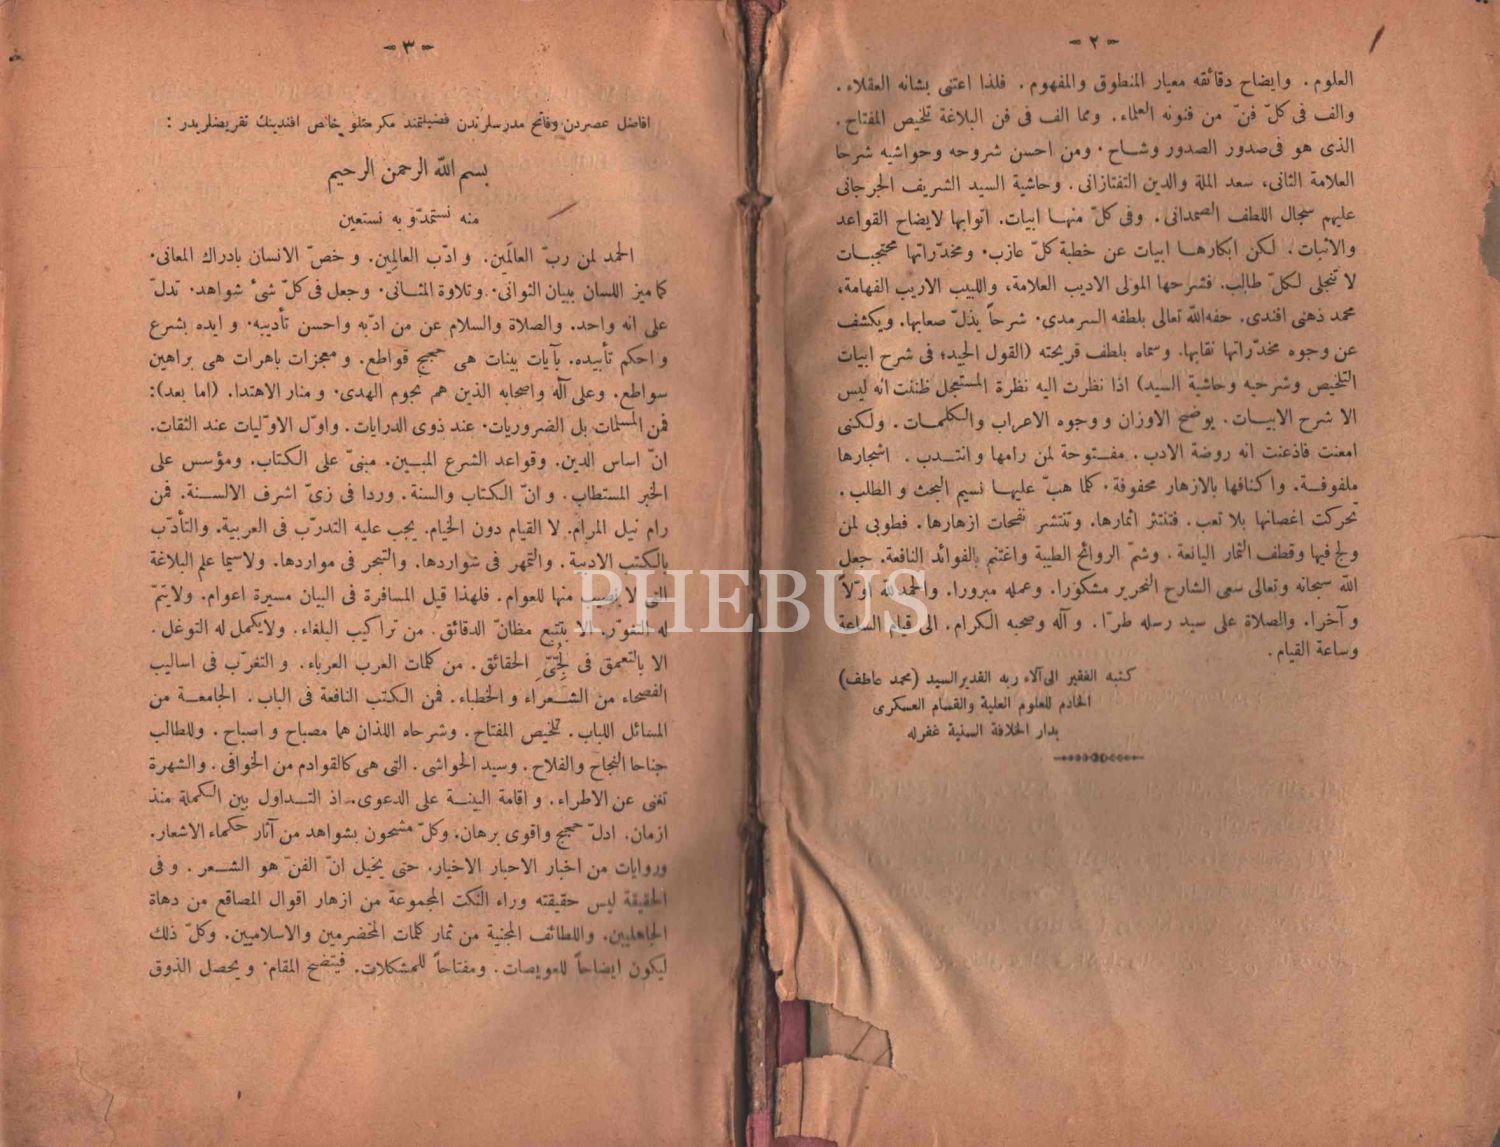 - ٢ -
العلوم . وايضاح دقائقه معيار المنطوق والمفهوم . فلذا اعتنى بشانه العقلاء .
والف فى كلّ فنّ من فنونه العلماء . ومما الف فى فن البلاغة تلخيص المفتاح .
الذى هو فى صدور الصدور وشاح . ومن احسن شروحه وحواشيه شرحا
العلامة الثانى، سعد الملة والدين التفتازانى . وحاشية السيد الشريف الجرجانى
عليهم سجال اللطف الصمدانى . وفى كلّ منها ابيات . اتوابها لايضاح القواعد
والاثبات . لكن ابكارها ابيات عن خطبة كلّ عازب . ومخدّراتها محتجبات
لا تنجلى لكلّ طالب . فشرحها المولى الاديب العلامة، واللبيب الاريب الفهامة،
محمد ذهنى افندى . حفه الله تعالى بلطفه السرمدى . شرحاً يذلّ صعابها . ويكشف
عن وجوه مخدّراتها نقابها . وسماه بلطف قريحته (القول الجيد؛ فى شرح ابيات
التلخيص وشرحيه وحاشية السيد) اذا نظرت اليه نظرة المستعجل ظننت انه ليس
الا شرح الابيات . يوضح الاوزان ووجوه الاعراب والكلمات . ولكنى
امعنت فاذعنت انه روضة الادب . مفتوحة لمن رامها وانتدب . اشجارها
ملفوفة . واكنافها بالازهار محفوفة . كلما هبّ عليها نسيم البحث والطلب .
تحركت اغصانها بلا تعب . فتنتثر اثمارها . وتنتشر نفحات ازهارها . فطوبى لمن
ولج فيها وقطف الثمار اليانعة . وشمّ الروائح الطيبة واغتنم بالفوائد النافعة . جعل
الله سبحانه وتعالى سعى الشارح النحرير مشكورا . وعمله مبرورا . والحمد لله اوّلا
وآخرا . والصلاة على سيد رسله طرّا . وآله وصحبه الكرام . الى قيام الساعة
وساعة القيام .
كتبه الفقير الى آلاء ربه القدير السيد (محمد عاطف)
الخادم للعلوم العلية والقسام العسكرى
بدار الخلافة السنية غفرله
- ٣ -
افاضل عصردن وفاتح مدرسلرندن فضيلتمند مكرمتلو خالص افندينك تقريضلريدر :
بسم الله الرحمن الرحيم
منه نستمدّ وبه نستعين
الحمد لمن ربّ العالَمين . وادّب العالِمين . وخصّ الانسان بادراك المعانى .
كما ميز اللسان ببيان الثوانى . وتلاوة المثانى . وجعل فى كلّ شئ شواهد . تدلّ
على انه واحد . والصلاة والسلام عن من ادّبه واحسن تأديبه . وايده بشرع
واحكم تأييده . بآيات بينات هى حجج قواطع . ومعجزات باهرات هى براهين
سواطع . وعلى آله واصحابه الذين هم نجوم الهدى . ومنار الاهتدا . (اما بعد):
فمن المسلمات بل الضروريات . عند ذوى الدرايات . واوّل الاوّليات عند الثقات .
انّ اساس الدين . وقواعد الشرع المبين . مبنىّ على الكتاب . ومؤسس على
الخبر المستطاب . وانّ الكتاب والسنة . وردا فى زىّ اشرف الالسنة . فمن
رام نيل المرام . لا القيام دون الخيام . يجب عليه التدرّب فى العربية . والتأدّب
بالكتب الادبية . والتمهر فى شواردها . والتبحر فى مواردها . ولاسيما علم البلاغة
التى لا نصيب منها للعوام . فلهذا قيل المسافرة فى البيان مسيرة اعوام . ولايتمّ
له التفوّر . الا بتتبع مظانّ الدقائق . من تراكيب البلغاء . ولايكمل له التوغل .
الا بالتعمق فى لُجَّىِّ الحقائق . من كلمات العرب العرباء . والتغرّب فى اساليب
الفصحاء من الشعراء والخطباء . فمن الكتب النافعة فى الباب . الجامعة من
المسائل اللباب . تلخيص المفتاح . وشرحاه اللذان هما مصباح واصباح . وللطالب
جناحا النجاح والفلاح . وسيد الحواشى . التى هى كالقوادم من الخوافى . والشهرة
تغنى عن الاطراء . واقامة البينة على الدعوى . اذ التداول بين الكملة منذ
ازمان . ادلّ حجج واقوى برهان . وكلّ مشحون بشواهد من آثار حكماء الاشعار .
وروايات من اخبار الاحبار الاخيار . حتى يخيل انّ الفنّ هو الشعر . وفى
الحقيقة ليس حقيقته وراء النكت المجموعة من ازهار اقوال المصاقع من دهاة
الجاهليين . واللطائف المجنية من ثمار كلمات المخضرمين والاسلاميين . وكلّ ذلك
ليكون ايضاحاً للعويصات . ومفتاحاً للمشكلات . فيتضح المقام . ويحصل الذوق
PHEBUS